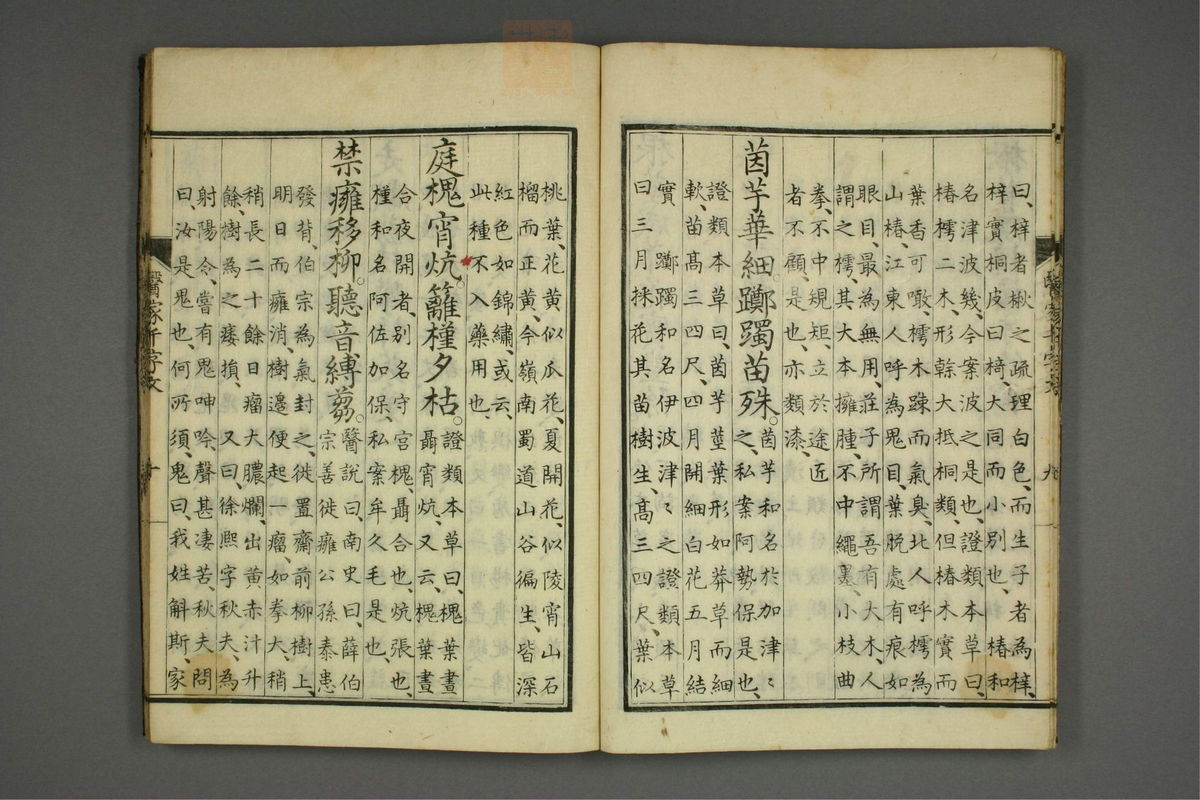 曰、梓者楸之疏理白色、而生子者為梓、
梓實桐皮曰椅、大同而小別也、椿和
名津波幾、今案波之是也、證類本草曰、
椿樗二木、形幹大抵桐類、但椿木實而
葉香可噉、樗木踈而氣臭、北人呼樗為
山椿、江東人呼為鬼目、葉脱處有痕如
眼目、最為無用、莊子所謂吾有大木、人
謂之樗、其大本擁腫、不中繩墨、小枝曲
拳、不中規矩、立於途近
者不顧、是也、亦類漆、
茵芋華細。躑躅苗殊。茵芋和名於加津々
之、私案阿勢保是也、
證類本草曰、茵芋莖葉形如莽草而細
軟、苗高三四尺、四月開細白花五月結
實、躑躅和名伊波津々之、證類本草
曰、三月採花其苗樹生、高三四尺、葉似
桃葉、花黄似瓜花、夏開花、似陵宵山石
榴而正黄、今嶺南蜀道山谷徧生、皆深
紅色如錦繡、或云、
此種不入藥用也、
庭槐宵炕。籬槿夕枯。證類本草曰、槐葉晝
聶宵炕、又云、槐葉晝
合夜開者、別名守宮槐、聶合也、炕張也、
槿和名阿佐加保、私案牟久毛是也、
禁癰移柳。聽音縛芻。醫說曰、南史曰、薛伯
宗善徙癰公孫泰患
發背、伯宗為氣封之、徙置齋前柳樹上、
明日而癰消、樹邊便起一瘤如拳大、稍
稍長二十餘日、瘤大膿爛、出黄赤汁升
餘、樹為之痿損、又曰、徐熙字秋夫、為
射陽令、嘗有鬼呻吟聲甚凄苦、秋夫問
曰、汝是鬼也、何所須、鬼曰、我姓斛斯、家
醫家千字文
九
醫家千字文
十